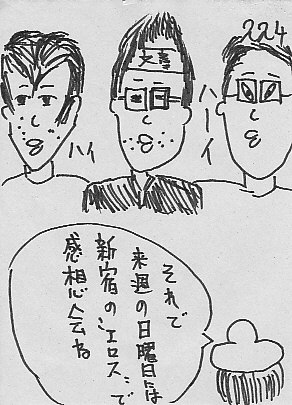 224
大喜
ハーイ
ハイ
それで
来週の日曜日には
新宿の"エロス"で
感想会ね